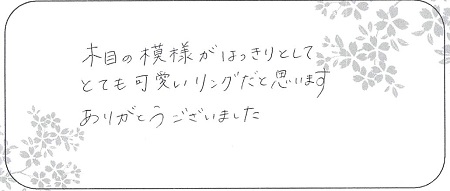 木目の模様がはっきりとして
とても可愛いリングだと思います
ありがとうございました